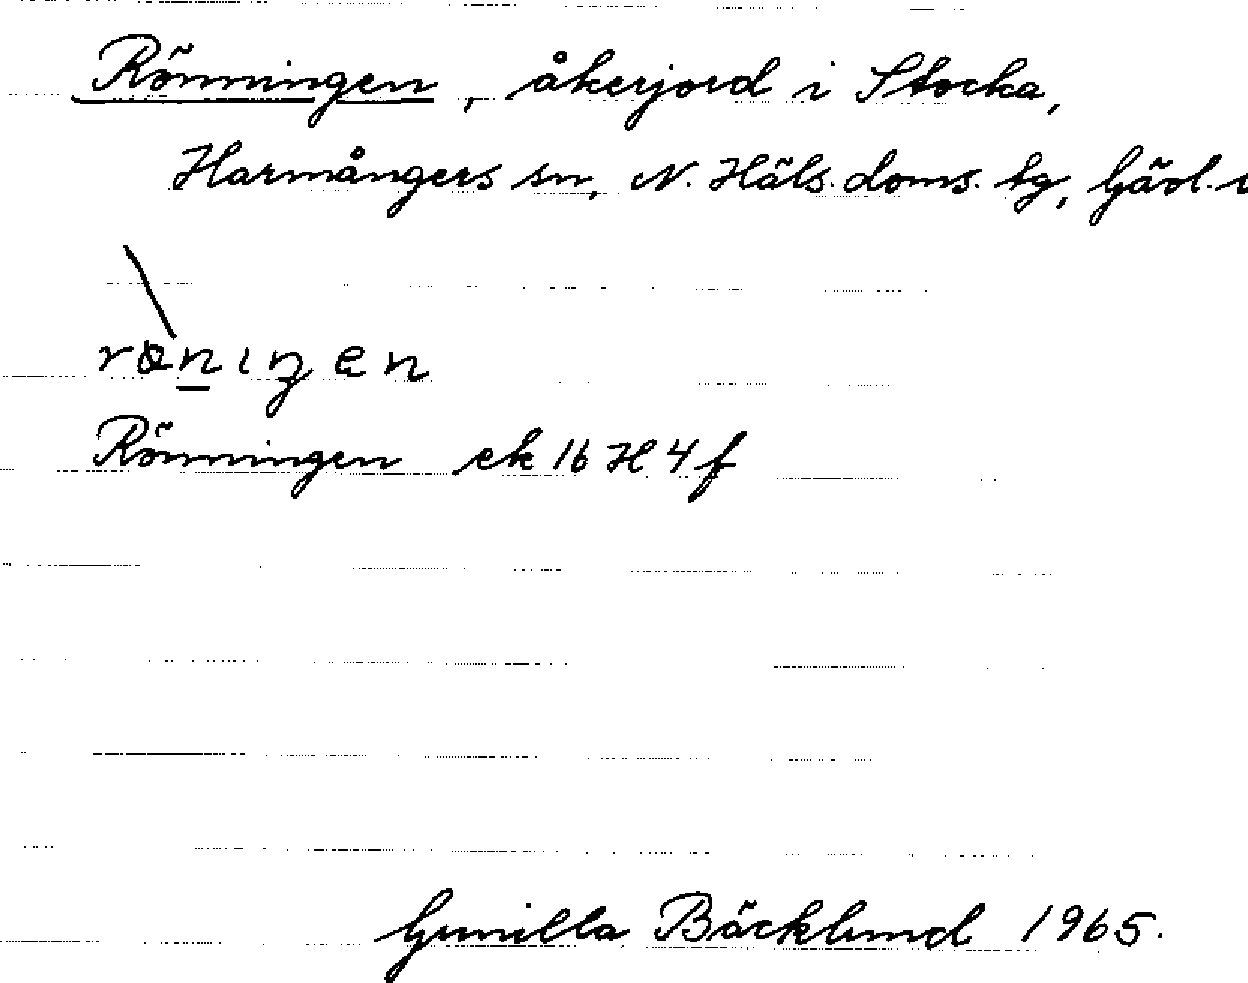 Rönningen, åkerjord i Stocka,
Harmångers sn, N. Häls. doms. tg, Gävl.
rönıŋen
Rönningen ek 16 H 4 f
Gunilla Bäcklund 1965.